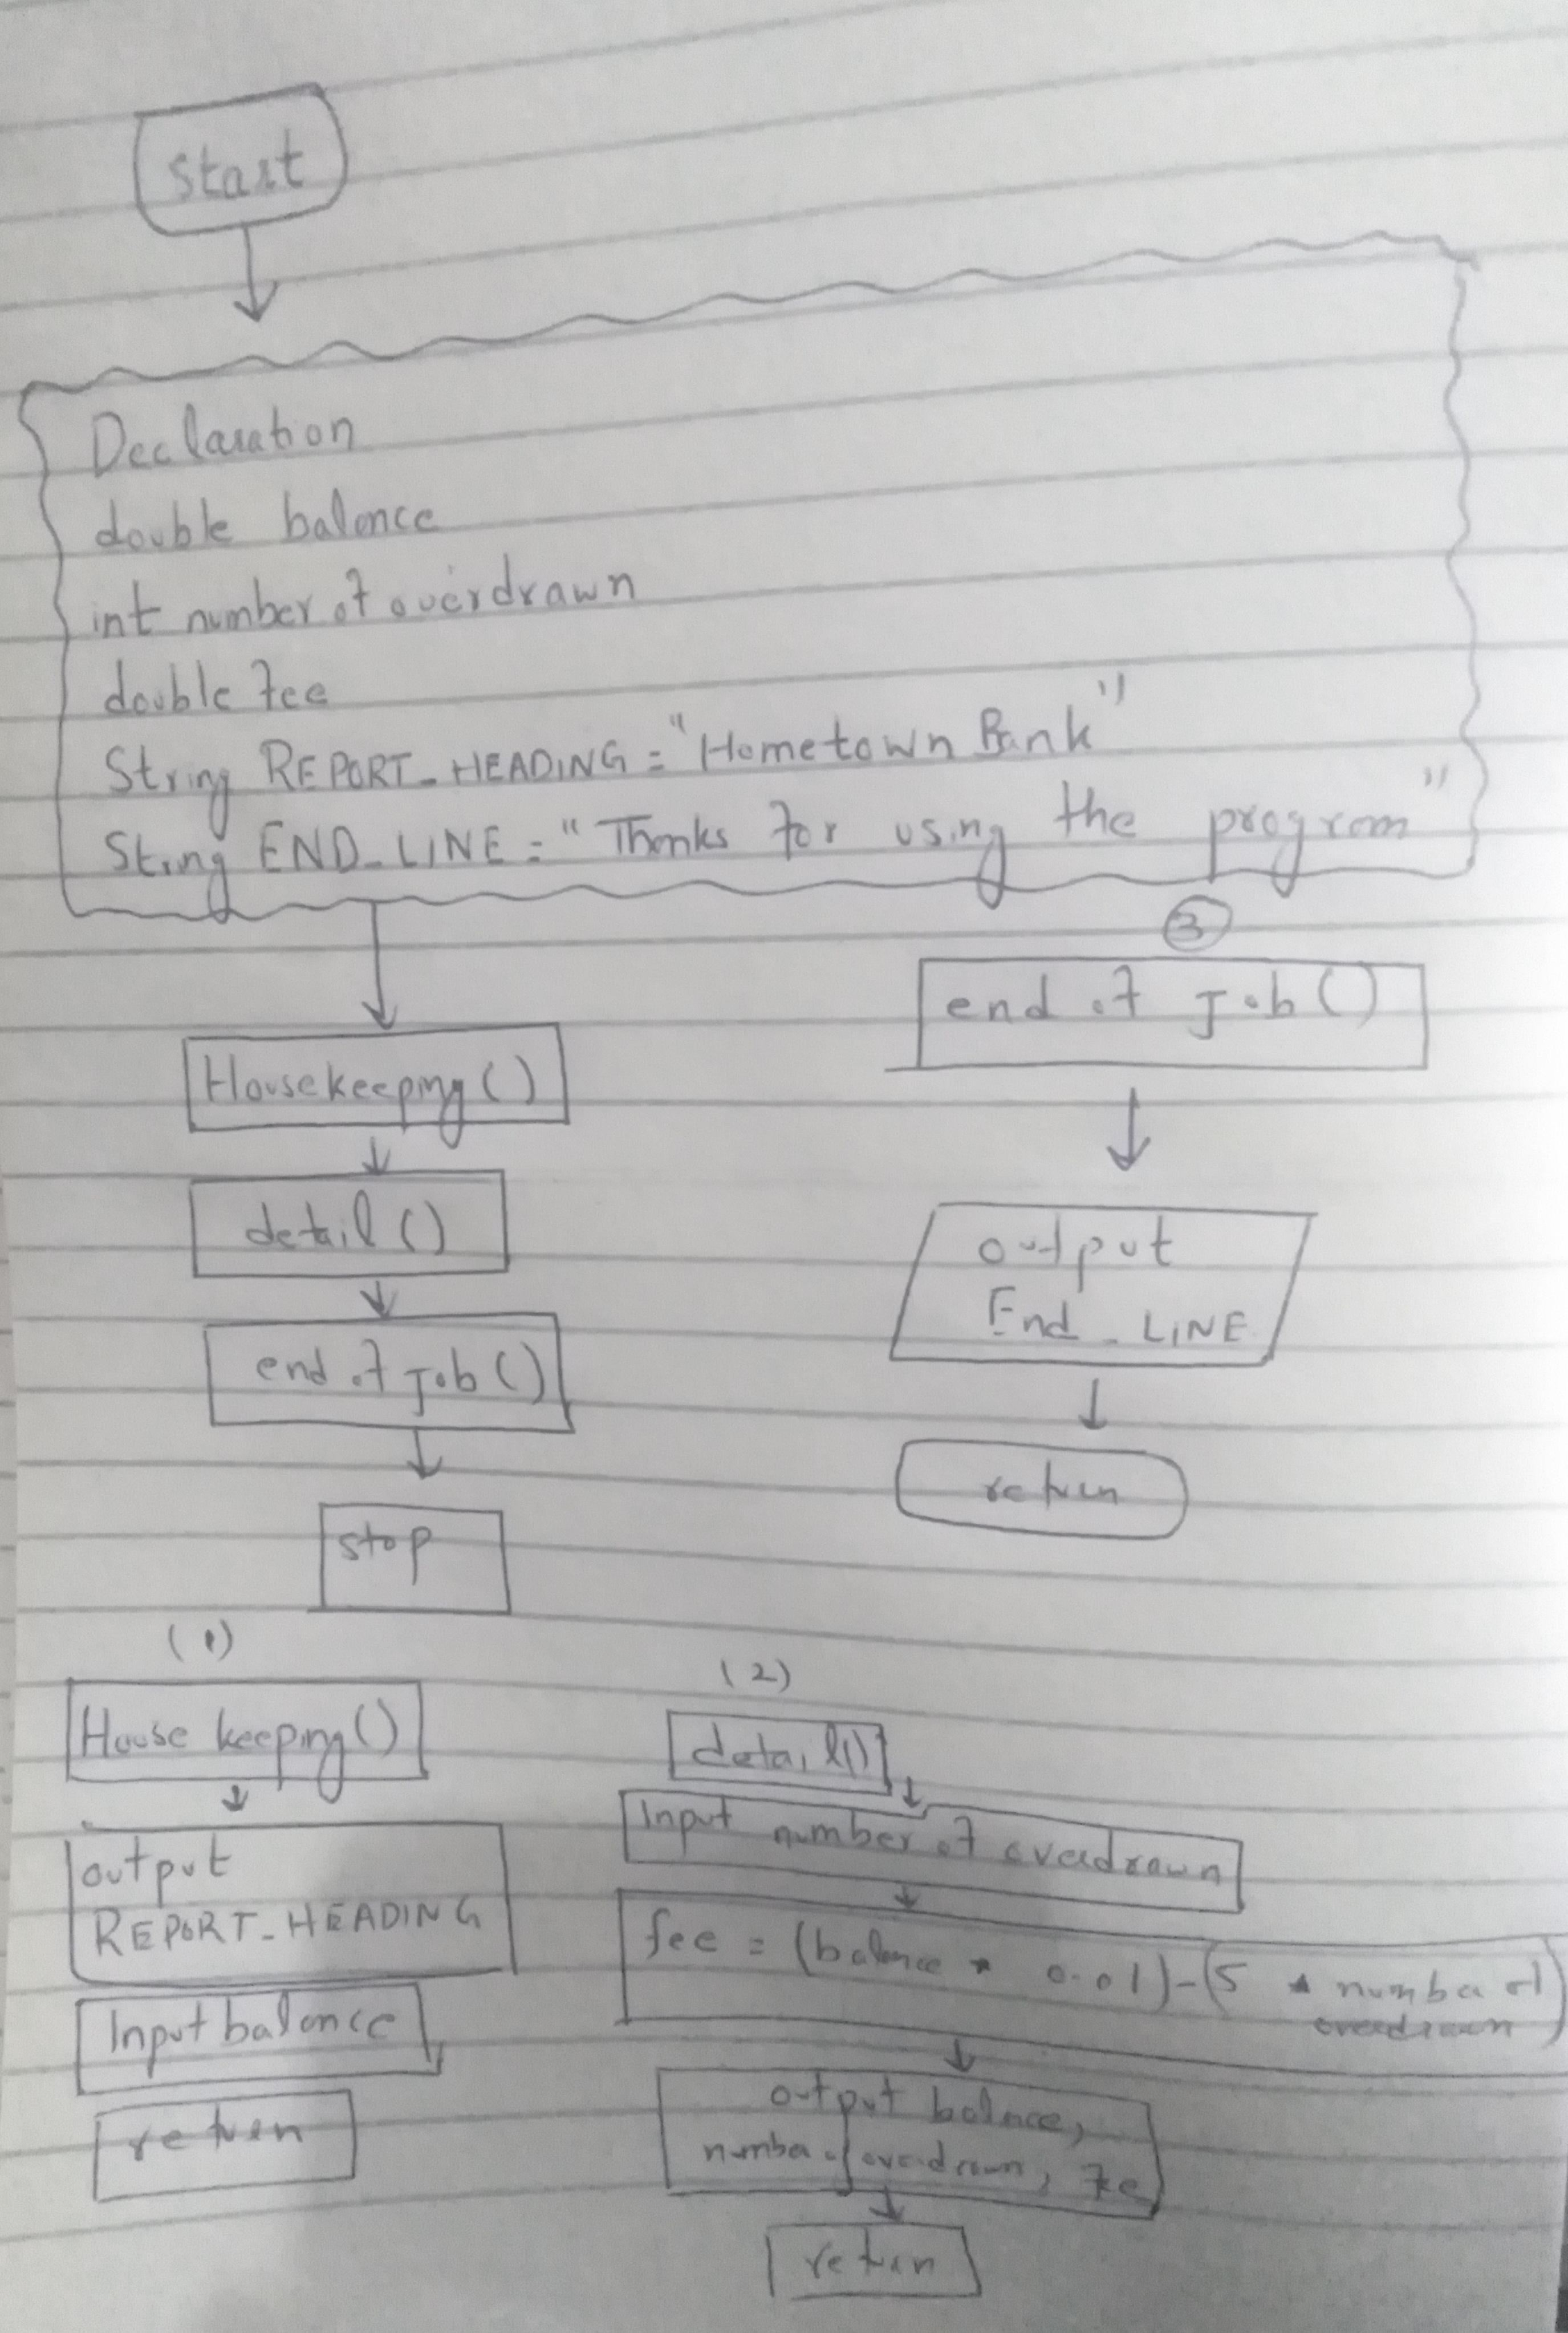 start
Declaration
double balance
int number of overdrawn
double fee
String REPORT_HEADING = "Hometown Bank"
String END_LINE = "Thanks for using the program"
Housekeeping()
detail()
end of job()
stop
3
end of job()
output
End_LINE
return
(1)
House keeping()
output
REPORT_HEADING
Input balance
return
(2)
detail()
Input number of overdrawn
fee = (balance * 0.01)-(5 * number of
overdrawn)
output balance,
number of overdrawn, fee
return